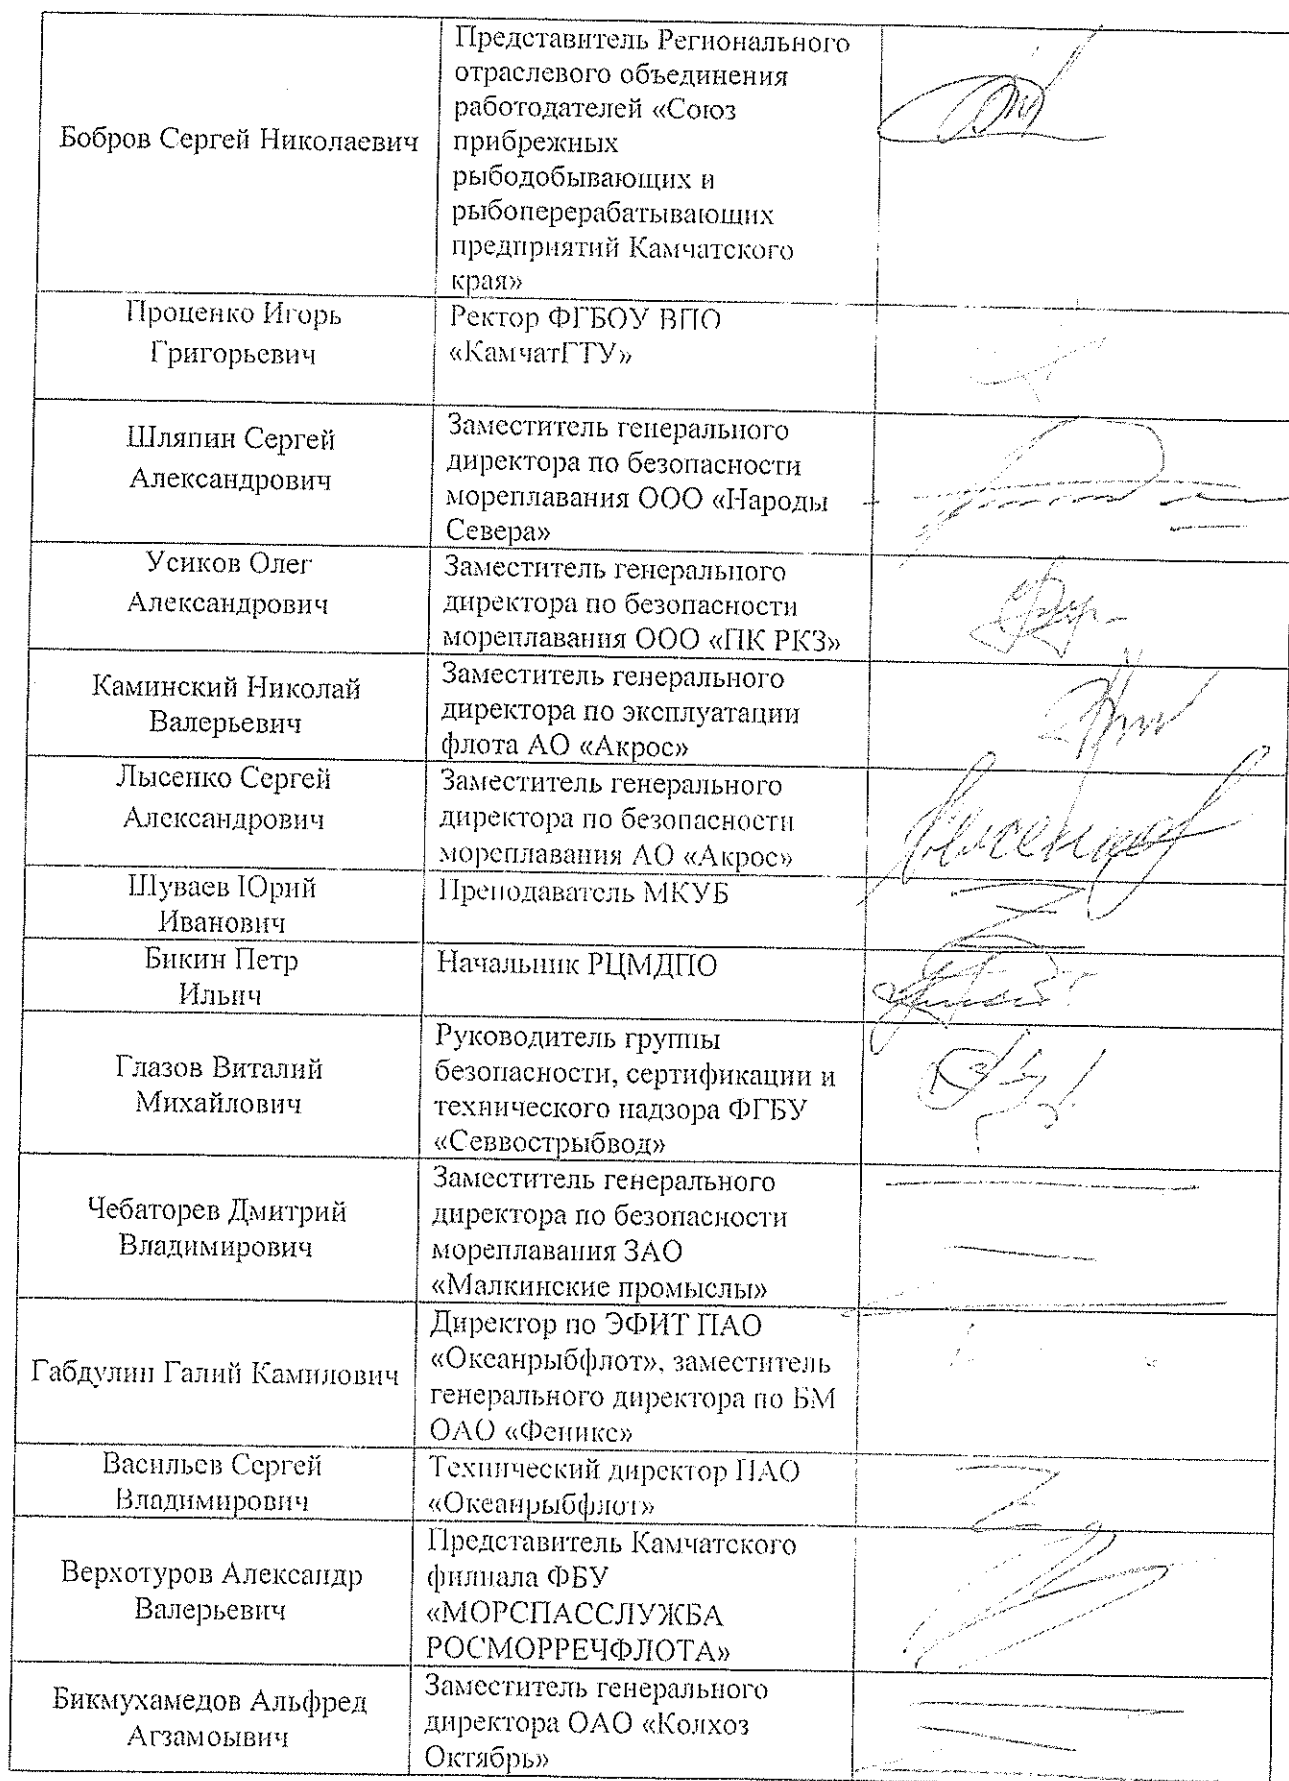 Бобров Сергей Николаевич
Представитель Регионального
отраслевого объединения
работодателей «Союз
прибрежных
рыбодобывающих и
рыбоперерабатывающих
предприятий Камчатского
края»
Проценко Игорь
Григорьевич
Ректор ФГБОУ ВПО
«КамчатГТУ»
Шляпин Сергей
Александрович
Заместитель генерального
директора по безопасности
мореплавания ООО «Народы
Севера»
Усиков Олег
Александрович
Заместитель генерального
директора по безопасности
мореплавания ООО «ПК РКЗ»
Каминский Николай
Валерьевич
Заместитель генерального
директора по эксплуатации
флота АО «Акрос»
Лысенко Сергей
Александрович
Заместитель генерального
директора по безопасности
мореплавания АО «Акрос»
Шуваев Юрий
Иванович
Преподаватель МКУБ
Бикин Петр
Ильич
Начальник РЦМДПО
Глазов Виталий
Михайлович
Руководитель группы
безопасности, сертификации и
технического надзора ФГБУ
«Севвострыбвод»
Чебаторев Дмитрий
Владимирович
Заместитель генерального
директора по безопасности
мореплавания ЗАО
«Малкинские промыслы»
Габдулин Галий Камилович
Директор по ЭФИТ ПАО
«Океанрыбфлот», заместитель
генерального директора по БМ
ОАО «Феникс»
Васильев Сергей
Владимирович
Технический директор ПАО
«Океанрыбфлот»
Верхотуров Александр
Валерьевич
Представитель Камчатского
филиала ФБУ
«МОРСПАССЛУЖБА
РОСМОРРЕЧФЛОТА»
Бикмухамедов Альфред
Агзамоывич
Заместитель генерального
директора ОАО «Колхоз
Октябрь»